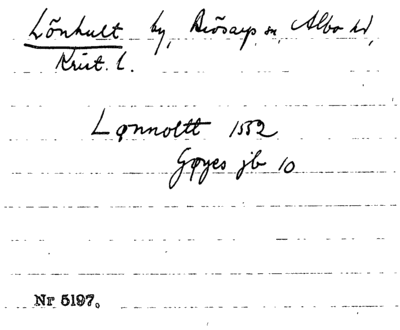 Lönhult by, Brösarps sn, Albo hd,
Krist. l.
Lønnoltt 1552
Gøyes jb 10
Nr 5197.